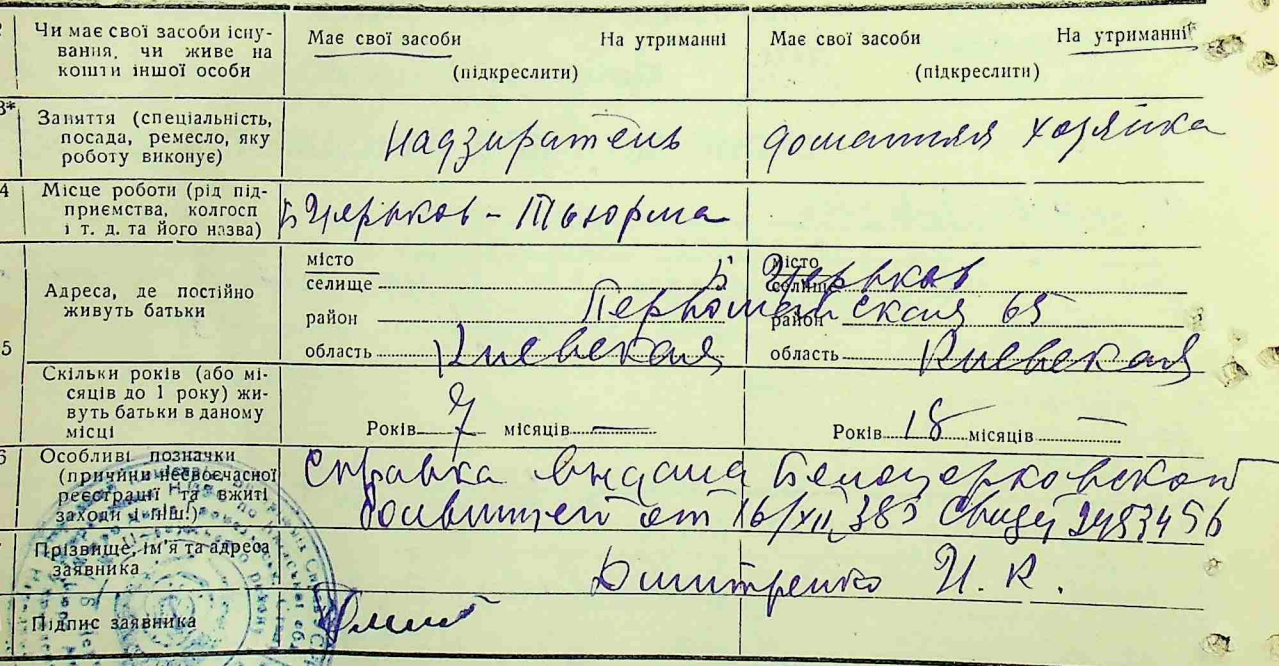 Чи має свої засоби існу-
вання, чи живе на
кошти іншої особи
Має свої засоби На утриманні
(підкреслити)
Має свої засоби На утриманні
(підкреслити)
3*
Заняття (спеціальність,
посада, ремесло, яку
роботу виконує)
надзиратель
домашняя хозяйка
4
Місце роботи (рід під-
приємства, колгосп
і т. д. та його назва)
Б Церьков - Тьюрма
5
Адреса, де постійно
живуть батьки
місто
селище
район
область Киевская
місто
селище
район
область Киевская
Б Церьков
Первомайская 65
Скільки років (або мі-
сяців до 1 року) жи-
вуть батьки в даному
місці
Років 7 місяців —
Років 18 місяців —
6
Особливі позначки
(причини несвоєчасної
реєстрації та вжиті
заходи і інш.)
Справка выдана Белоцерковской
больницей от 16/XII 38
Прізвище, ім'я та адреса
заявника
Дмитренко И. К.
Підпис заявника